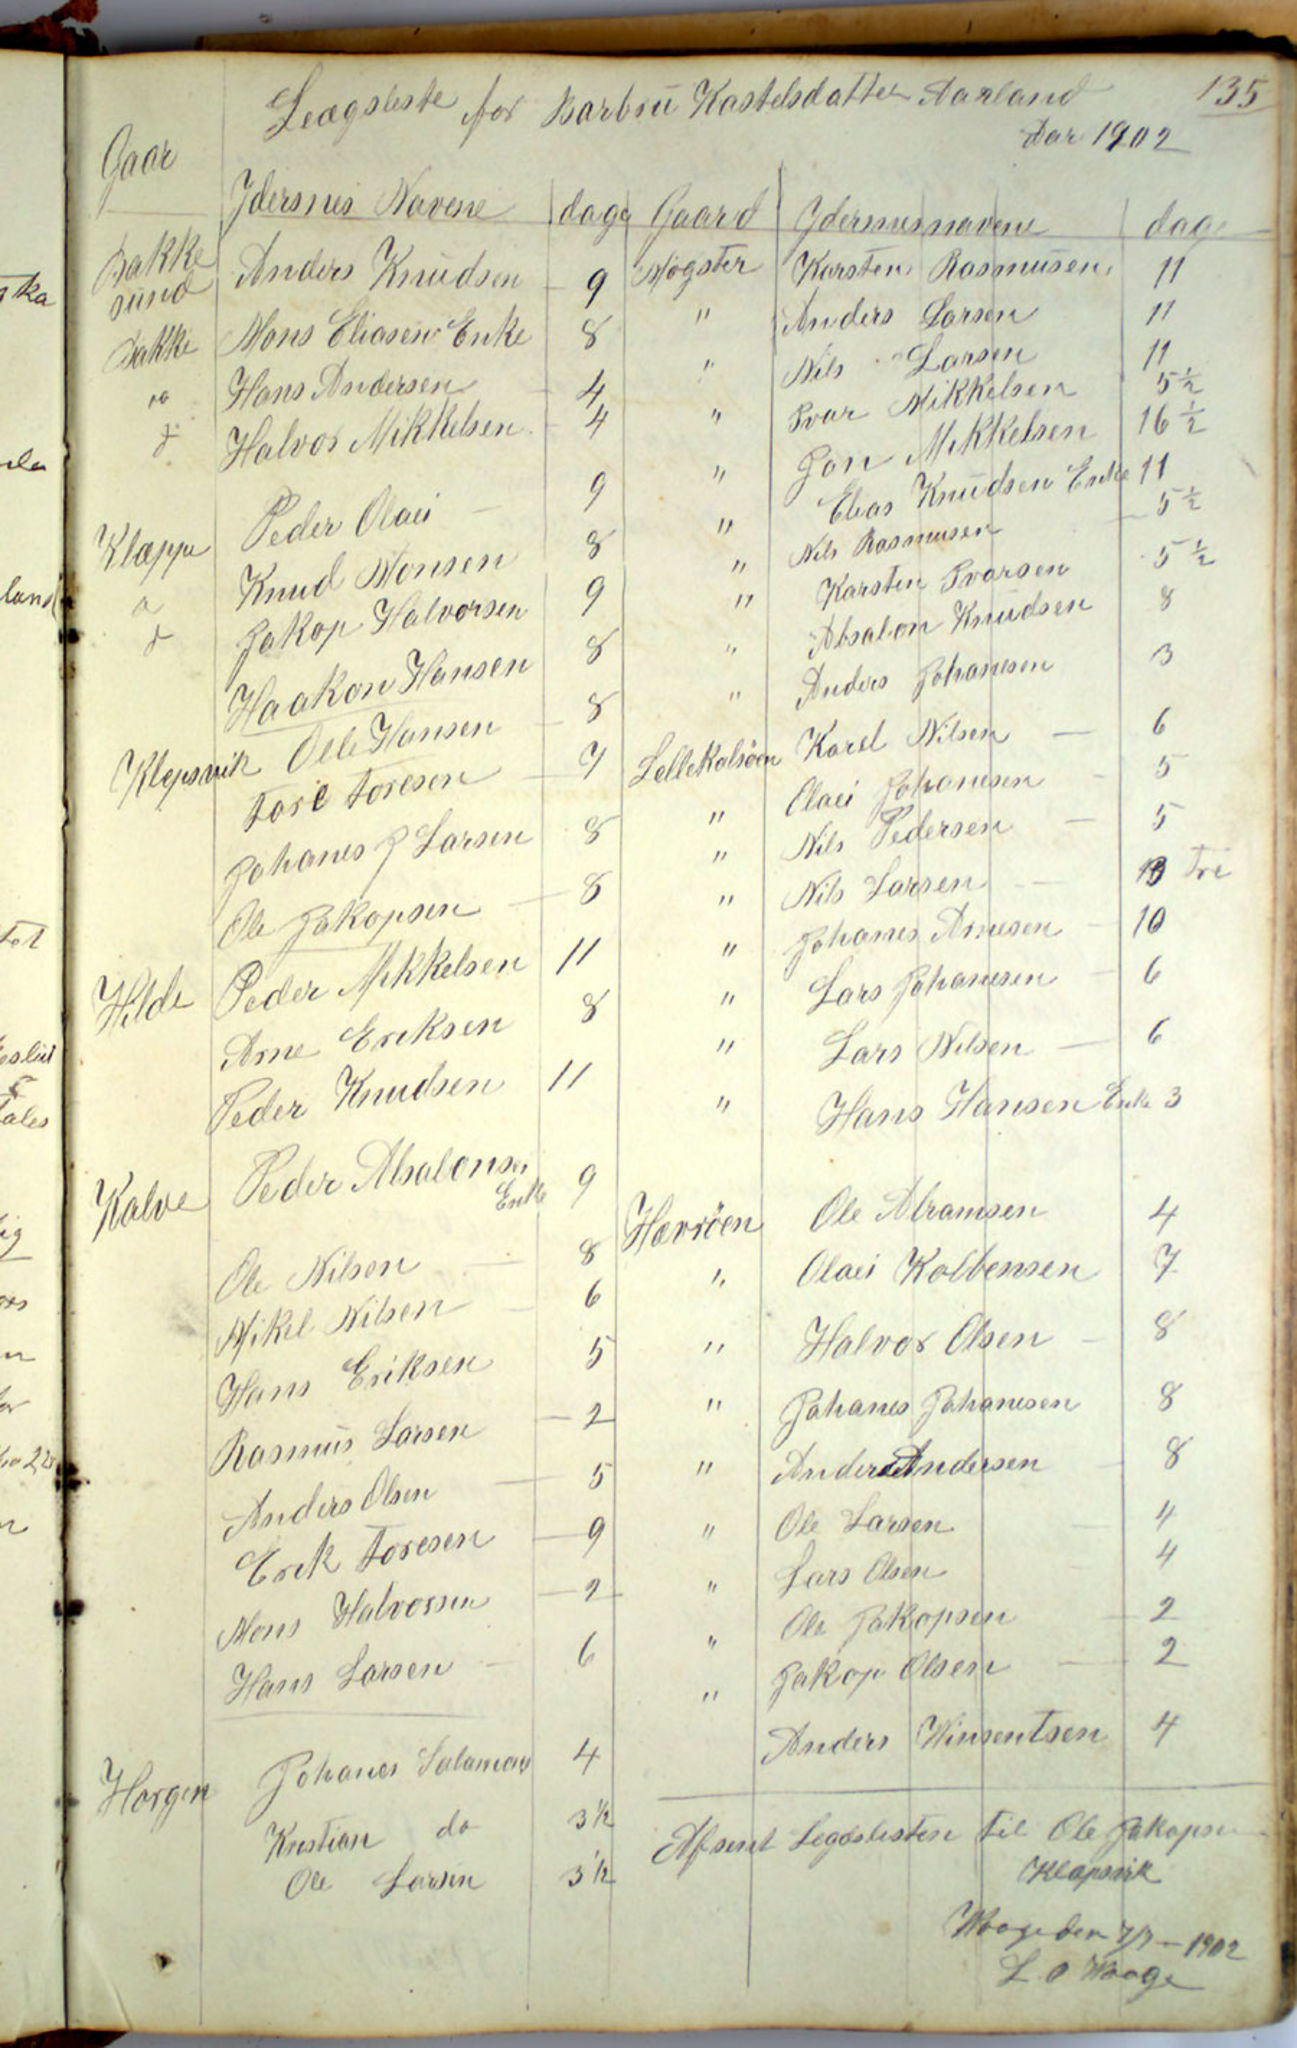 135
Lægsliste for Barbru Kastelsdatter Aarland
Aar 1902
Gaar Ydersnes Navene dage Gaard Ydernesnavene dage
Bakke sund Anders Knudsen 9 Møgster Karsten Rasmusen 11
Bakke Mons Eliasen Enke 8 " Anders Larsen 11
do Hans Andersen 4 " Nils Larsen 11
Halvor Mikkelsen 4 " Ivar Mikkelsen 5 1/2
" Jon Mikkelsen 16 1/2
Klæppe Peder Olai 9 " Elias Knudsen Enke 11
Knud Monsen 8 " Nils Rasmusen 5 1/2
Jakop Halvorsen 9 " Karsten Ivarsen 5 1/2
Haakon Hansen 8 " Absalon Knudsen 8
Klepsvik Olle Hansen 8 " Anders Johanesen 3
Tore Toresen 7 Lellekalsøen Karel Nilsen 6
Johanes J Larsen 8 " Olai Johanesen 5
Ole Jakopsen 8 " Nils Pedersen 5
Hilde Peder Mikkelsen 11 " Nils Larsen 13 Tre
Arne Eriksen 8 " Johanes Arnesen 10
Peder Knudsen 11 " Lars Johanesen 6
" Lars Nilsen 6
" Hans Hansen Enke 3
Kalve Peder Absalonsen Enke 9
Ole Nilsen 8 Hævrøen Ole Abramsen 4
Mikel Nilsen 6 " Olai Kolbensen 7
Hans Eriksen 5 " Halvor Olsen 8
Rasmus Larsen 2 " Johanes Johanesen 8
Anders Olsen 5 " Anders Andersen 8
Erik Toresen 9 " Ole Larsen 4
Mons Halvorsen 2 " Lars Olsen 4
Hans Larsen 6 " Ole Jakopsen 2
" Jakop Olsen 2
Anders Winsentsen 4
Horgen Johanes Salamons 4
Kristian do 3 1/2
Ole Larsen 3 1/2
Afsent Legdslisten til Ole Jakopsen
Klæpsvik
Waage den 7/7 - 1902
L O Waage